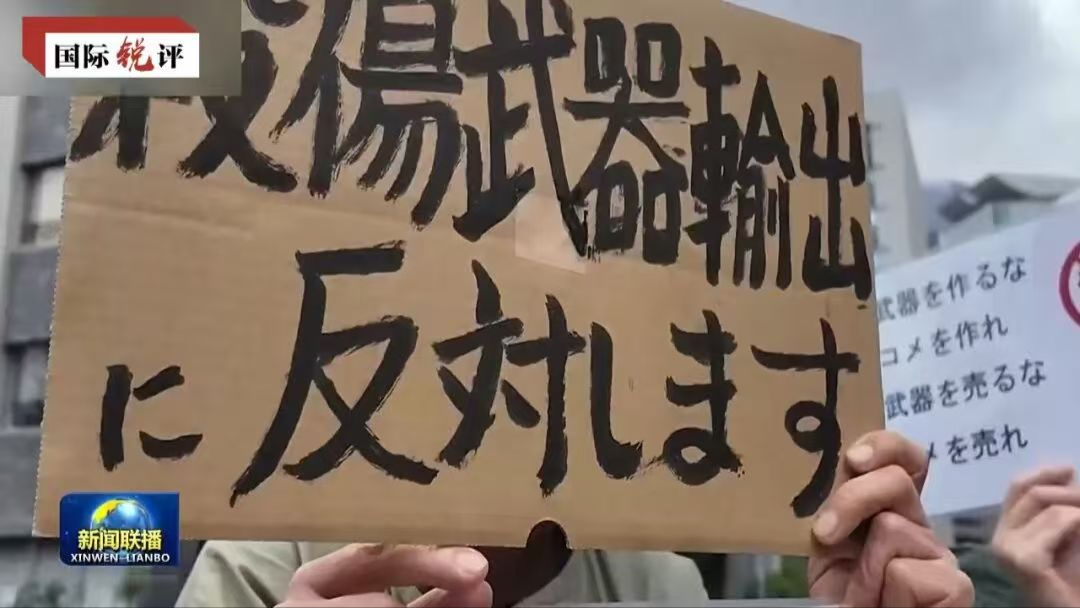 国际锐评
殺傷武器輸出
に反対します
武器を作るな
コメを作れ
武器を売るな
メを売れ
新闻联播
XINWEN-LIANBO